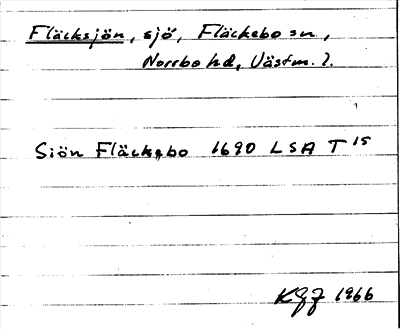 Fläcksjön, sjö, Fläckebo sn,
Norrbo hd, Västm. l.
Siön Fläckebo 1690 LSA T 15
KGJ 1966